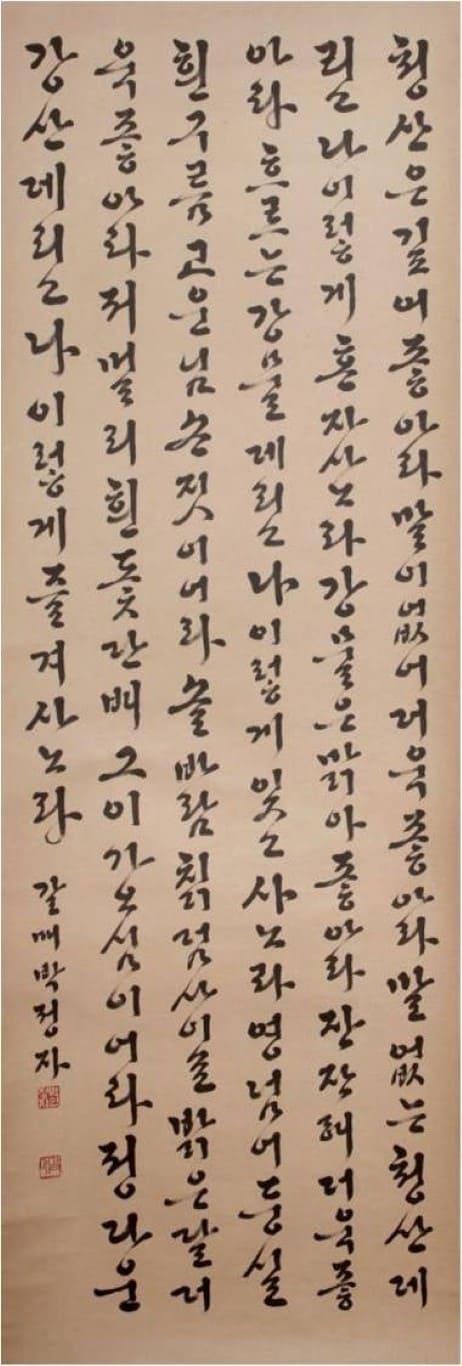 청산은깊어좋아라말이없어더욱좋아라말없는청산데
리고나이렇게혼자사노라강물은맑아좋아라잔잔해더욱좋
아라흐르는강물데리고나이렇게잊고사노라영넘어둥실
흰구름고운님손짓이어라솔바람칡덤사이로밝은달더
욱좋아라저멀리흰돛단배그이가오심이어라정다운
강산데리고나이렇게즐겨사노라 갈매박정자